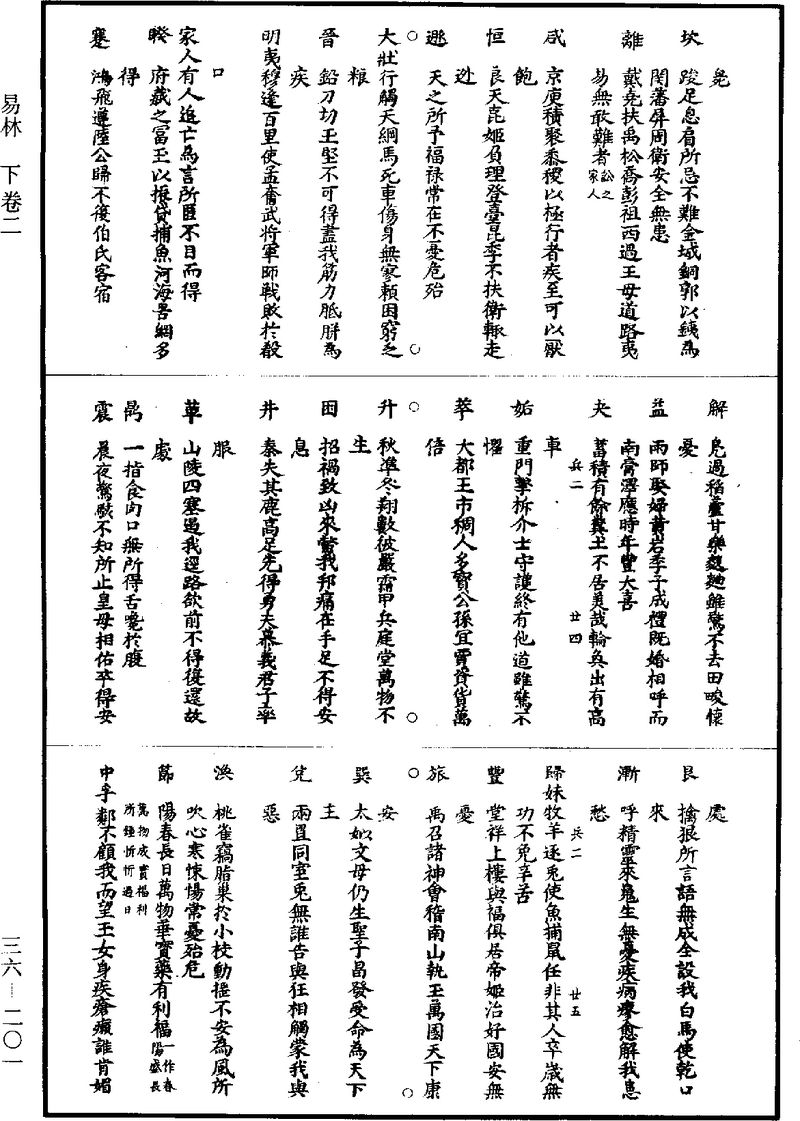 免
坎 踆足息肩所忌不難金城銅郭以鐵為
関藩屏周衛安全無患
離 戴堯扶禹松喬彭祖西過王母道路夷
易無敢難者 訟之家人
咸 京庾積聚黍稷以極行者疾至可以厭
飽
恒 良夫孔姬負理登臺昆季不扶衛輒走
逃
遯 天之所予福禄常在不憂危殆
大壯 行觸天綱馬死車傷身無寥賴困窮乏
粮
晉 鉛刀切玉堅不可得盡我筋力胝胼為
疾
明夷 穆逢百里使孟奮武將軍師戰敗於殽
口
家人 有人追亡鳥言所匿不日而得
睽 府藏之冨王以振貸捕魚河海罟網多
得
蹇 鴻飛遵陸公歸不復伯氏客宿
解 鳧過稻蘆甘樂 雖驚不去田畯懷
憂
益 雨師娶婦黄岩季子成禮既婚相呼而
南膏澤應時年豐大喜
夬 蓄積有餘糞土不居美哉輪奐出有高
車
兵二 廿四
姤 重門擊柝介士守護終有他道雖驚不
懼
萃 大都王市稠人多寳公孫冝賈資貨萬
倍
升 秋隼冬翔數被嚴霜甲兵庭堂萬物不
生
困 招禍致凶來 我邦痛在手足不得安
息
井 秦失其鹿高足先得勇夫慕義君子率
服
革 山陵四塞遏我逕路欲前不得復還故
處
鼎 一指食肉口無所得舌饞於腹
震 晨夜驚駭不知所止皇母相佑卒得安
處
艮 擒狼所言語無成全設我白馬使乾口
來
漸 呼精靈來䰟生無憂疾病瘳愈解我患
愁
兵二 廿五
歸妹 牧羊逐兎使魚捕鼠任非其人卒歲無
功不免辛苦
豐 堂祥上樓與福俱居帝姬治好國安無
憂
旅 禹召諸神會稽南山執玉萬國天下康
安
巽 太姒文母仍生聖子昌發受命為天下
主
兌 兩置同室兎無誰告與狂相觸蒙我與
惡
渙 桃雀竊脂巢扵小枝動摇不安為風所
吹心寒悚惕常憂殆危
節 陽春長日萬物華實藥有利福 一作春陽盛長萬物成實福利所鍾忻忻過日
中孚 鄰不顧我而望玉女身疾瘡癩誰肯媚
易林 下卷二
三六—二〇一